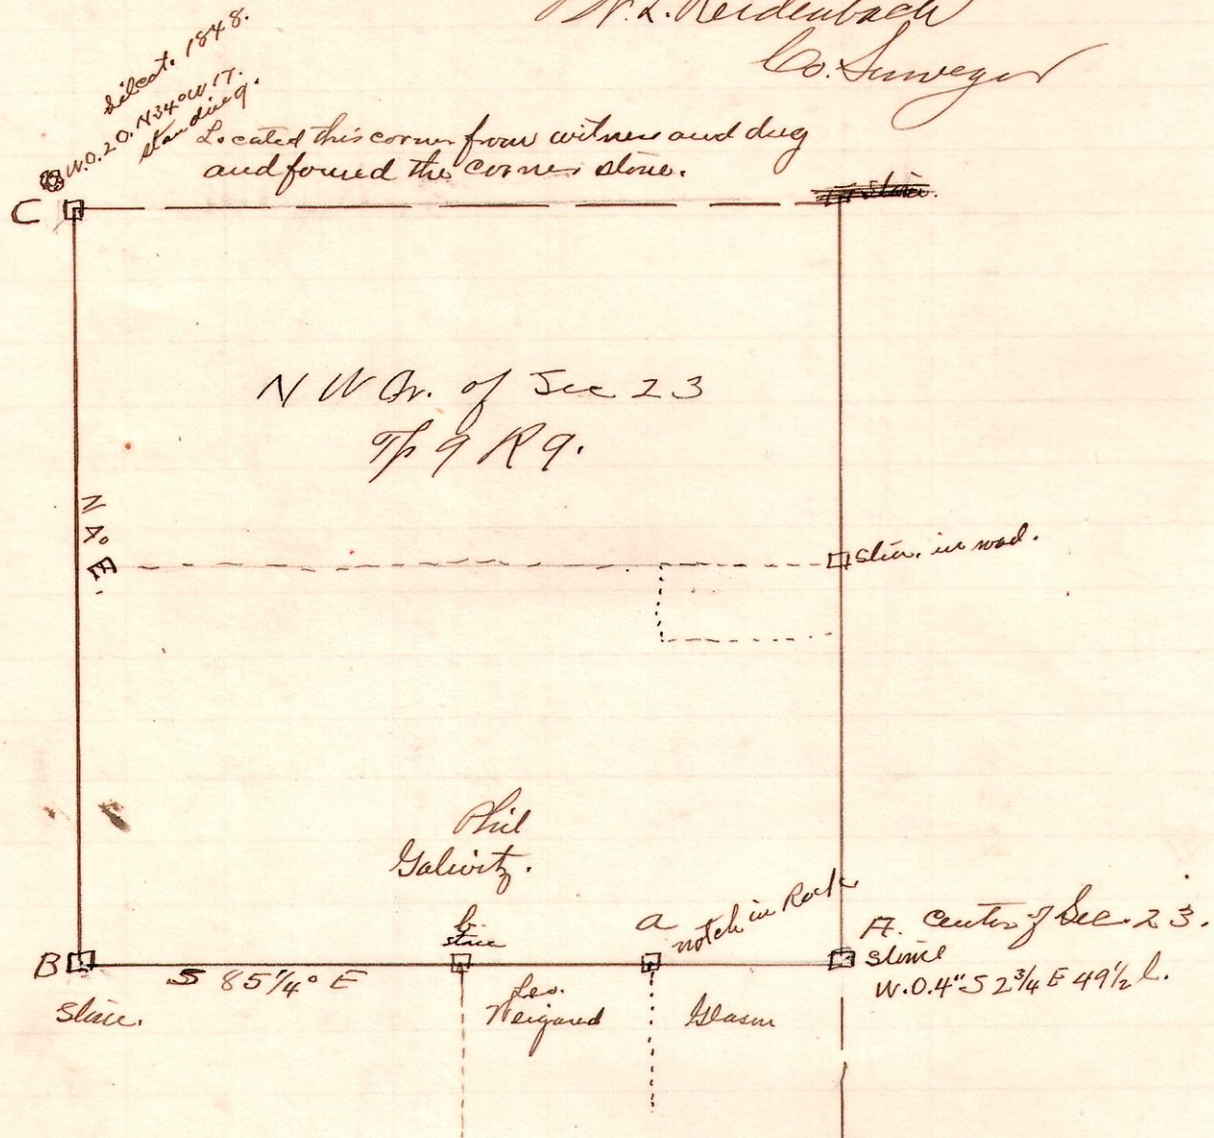 W. L. Reidenbach
Co. Surveyor
Silcot. 1848.
W.O. 20. N34°W 17.
standing.
Located this corner from witness and dug
and found the corner stone.
C
N W Qr. of Sec 23
Tp 9 R 9.
N 4° E.
Stone. in road.
Phil
Galwitz.
b.
stone
a
notch in Rock
A. Center of Sec. 23.
stone
W.O. 4" S 2 3/4 E 49 1/2 l.
B
S 85 1/4° E
Stone.
Leo.
Weigand
Gleason